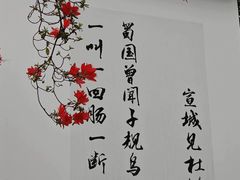 宣城見杜
蜀国曾闻子规鸟
一叫一回肠一断